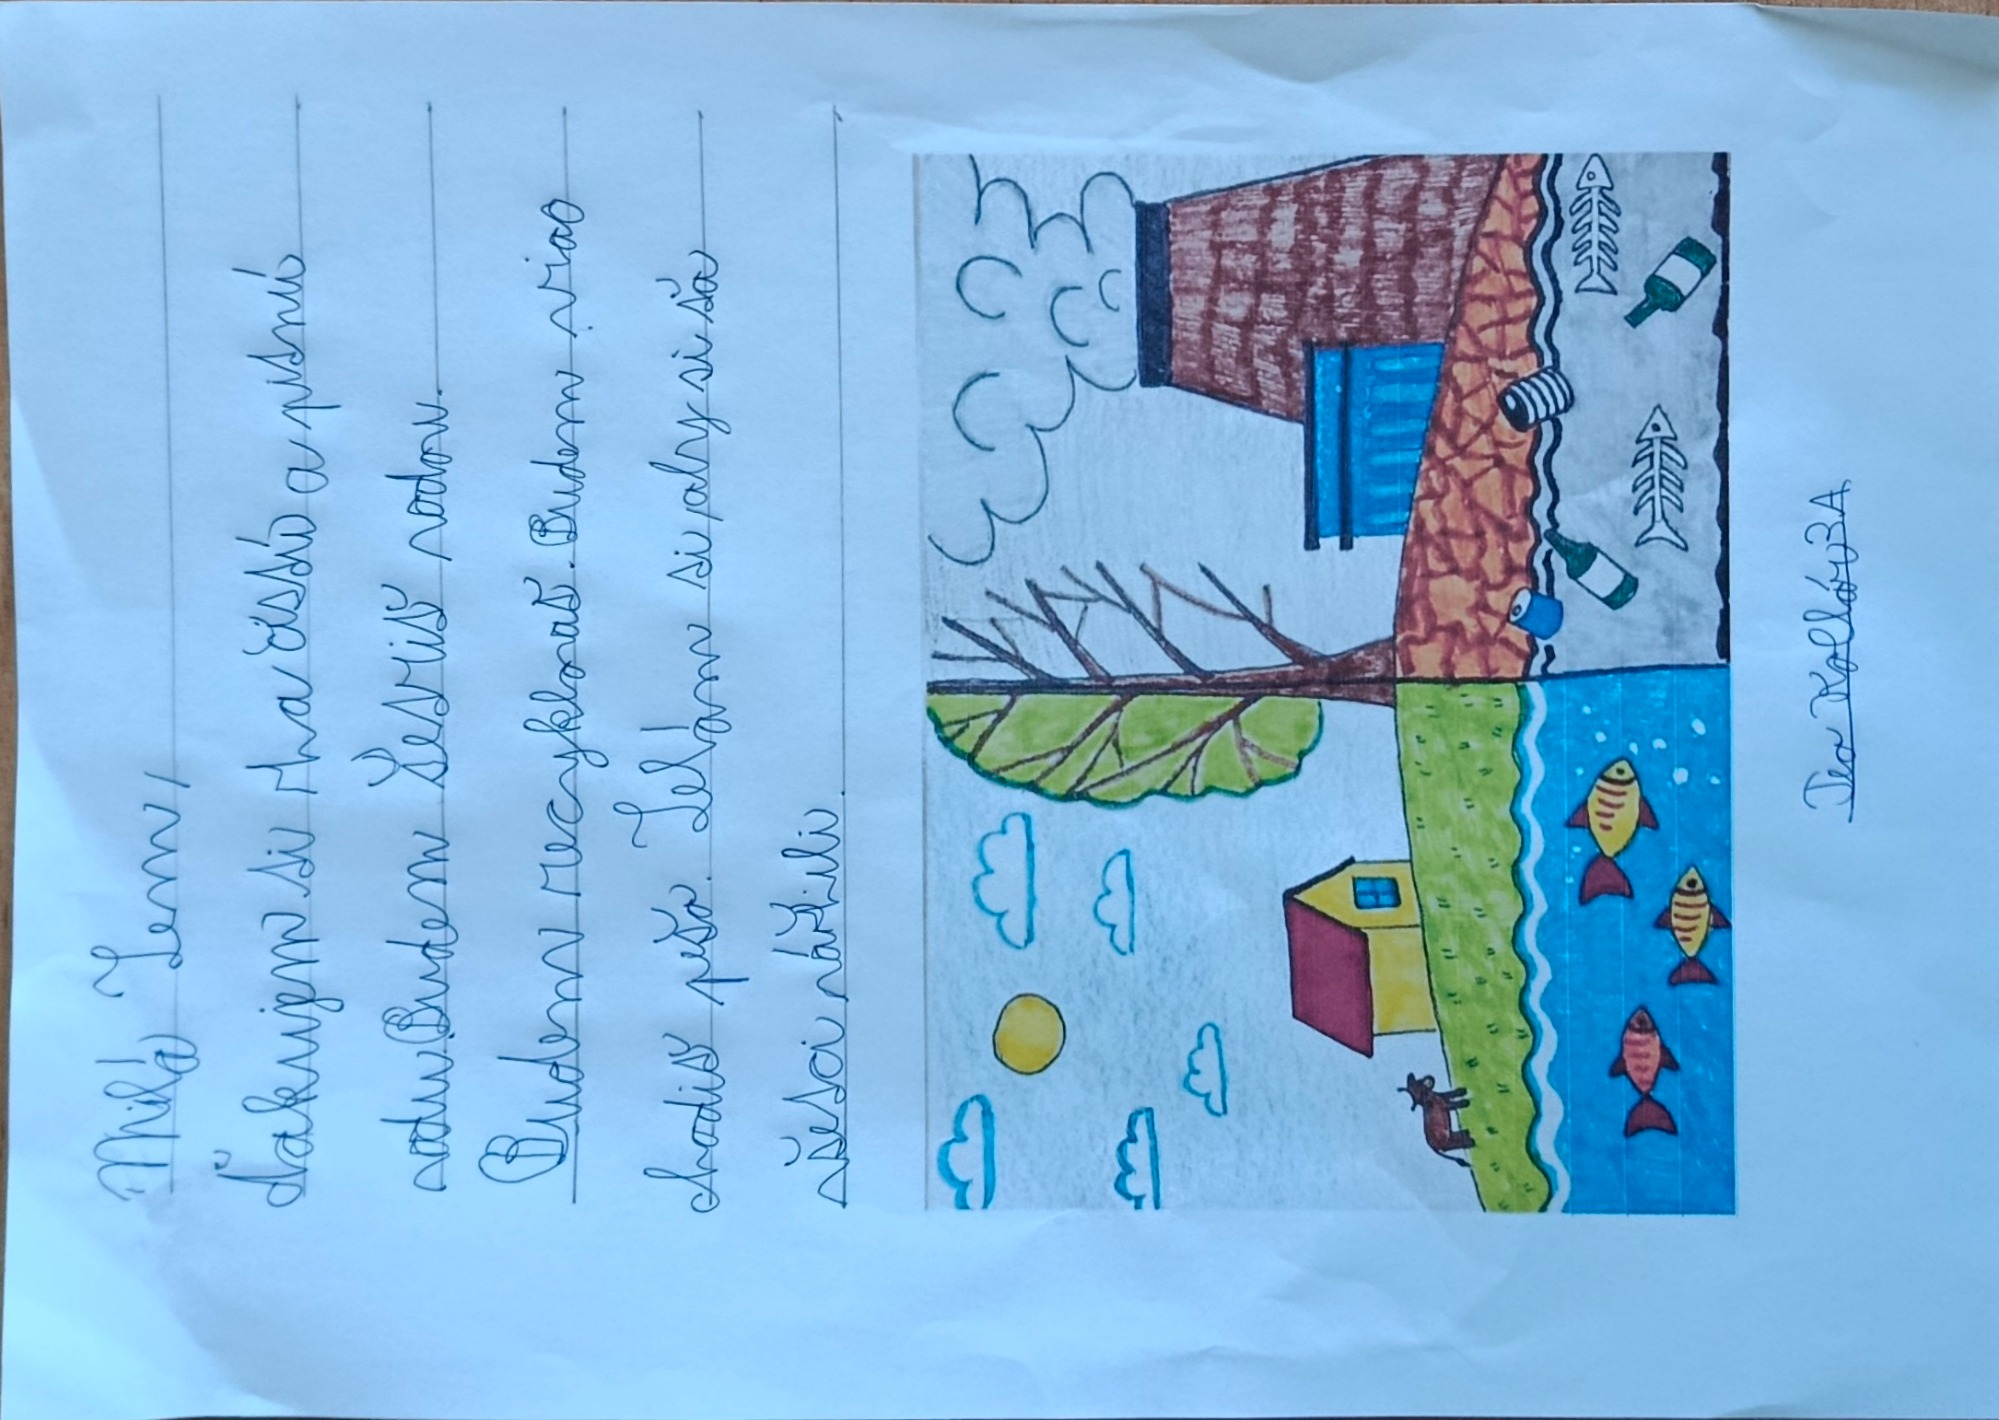 Milá Zem,
ďakujem si tha čistú a pisnú
vodu. Budem šetriť vodov.
Budem recyklovať. Budem viao
chodiť pešo. Želám si, aby si ťa
všetci vážili.
Tea Kollár, 3.A